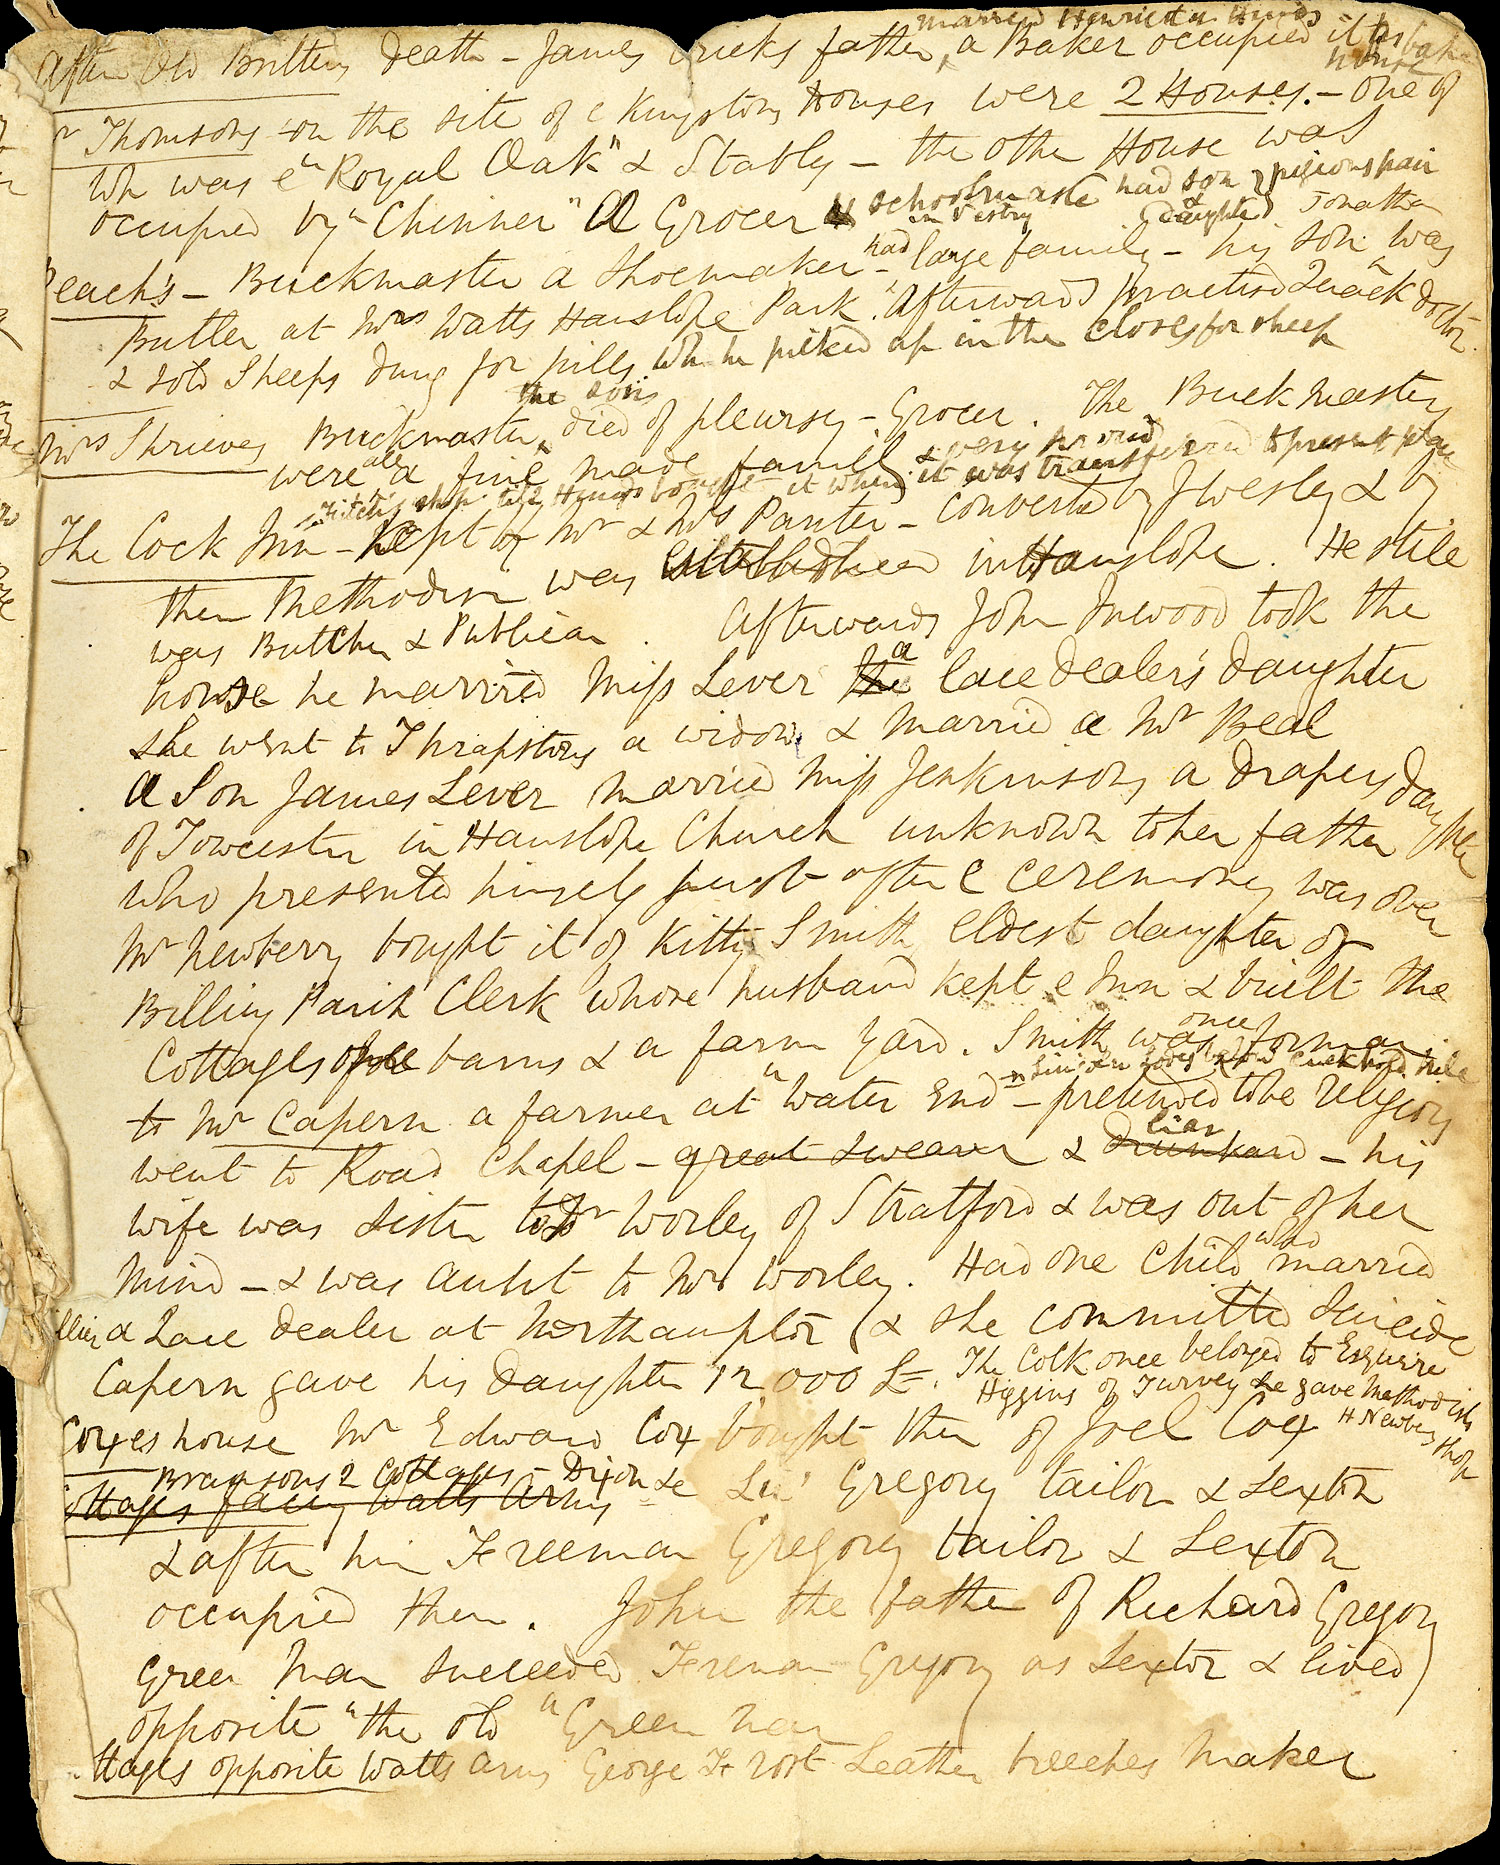 married Henrietta Hinds
After Old Brittens death - James Cricks father, a Baker occupied it as bake
house
Thomsons on the site of e Kingstons Houses were 2 Houses. - One of
Wh was e "Royal Oak" & Stables - the other House was
occupied by "Chinner" A Grocer & schoolmaster had son & pigions pair
in Vestry & daughter Jonathan
Peach's - Buckmaster a Shoemaker - had large family - his son was
Butler at Mrs Watts Hanslope Park. Afterward practised Quack doctor
& sold Sheeps dung for pills Wh he picked up in the Closes for sheep
the son
Mrs Shrieves Buckmaster, died of pleursy - Grocer. The Buckmasters
were all a fine made family & very proud
shop till Hinds bought it when it was transferred to present place
The Cock Inn - Kept by Mr & Mrs Panter - Converted by J Wesley & by
them Methodism was established in Hanslope. He still
was Butcher & Publican. Afterwards John Inwood took the
house he married Miss Lever the a lace dealer's daughter
She went to Thrapston a widow & married a Mr Beal
A Son James Lever married Miss Jenkinson, a drapers daughter
of Towcester in Hanslope Church unknown to her father
who presented himself just after e ceremony was over
Mr Newberry bought it of Kitty Smith eldest daughter of
Billing Parish Clerk whose husband kept e Inn & built the
Cottages barns & a farm yard. Smith was once forman
to Mr Capern a farmer at "Water End" - pretended to be religious
went to Road Chapel - great swearer & drunkard liar - his
wife was sister to Dr Worley of Stratford & was out of her
mind - & was aunt to Mr Worley. Had one Child who married
a Lace dealer at Northampton (& she committed Suicide
Capern gave his Daughter 12 000 £. The Cock once belonged to Esquire
Higgins of Turvey he gave Methodists
Coxes house Mr Edward Cox bought them of Joel Cox H Newberrys shop
Bransons 2 Cottages - Dixon &c Gregory tailor & Sexton
Cottages facing Watts Arms
& after him Freeman Gregory tailor & Sexton
occupied them. John the father of Richard Gregory
Green Man succeeded Freeman Gregory as Sexton & lived
opposite "the old "Green Man
ttages opposite Watts Arms George Frost Leather breeches maker